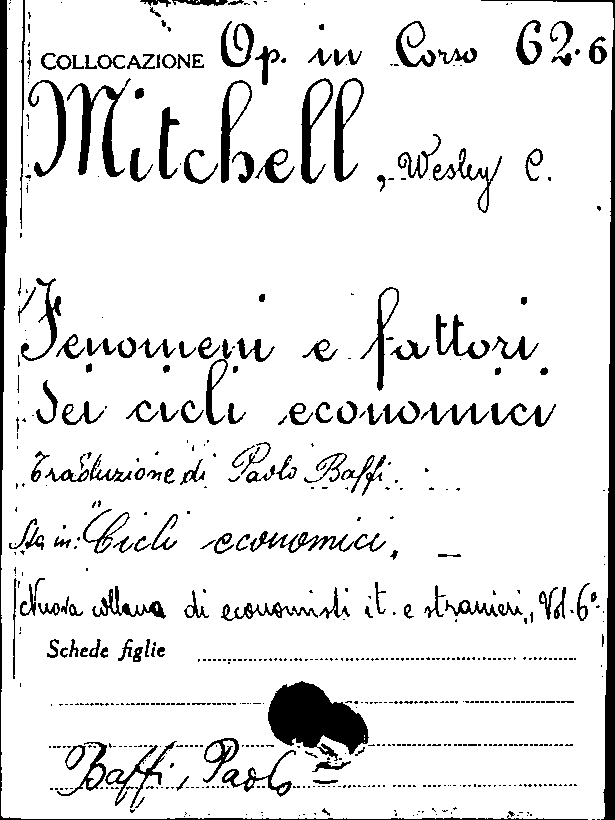 COLLOCAZIONE Op. in Corso 62.6
Mitchell, Wesley C.
Fenomeni e fattori
dei cicli economici
Traduzione di Paolo Baffi.
Sta in: "Cicli economici. —
Nuova collana di economisti it. e stranieri,, Vol. 6°-
Schede figlie
Baffi, Paolo =